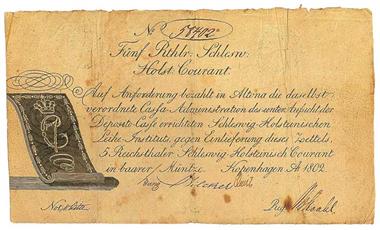 No 58402
Fünf Rthlr. Schlesw:
Holst: Courant.
Auf Anforderung bezahlt in Altona die daselbst
verordnete Cassa-Administration des unter Aufsicht der
Deposito-Casse errichteten Schleswig-Holsteinischen
Leihe-Instituts, gegen Einlieferung dieses Zettels,
5 Reichsthaler Schleswig-Holsteinisch Courant
in baarer Müntze. Kopenhagen A 1802